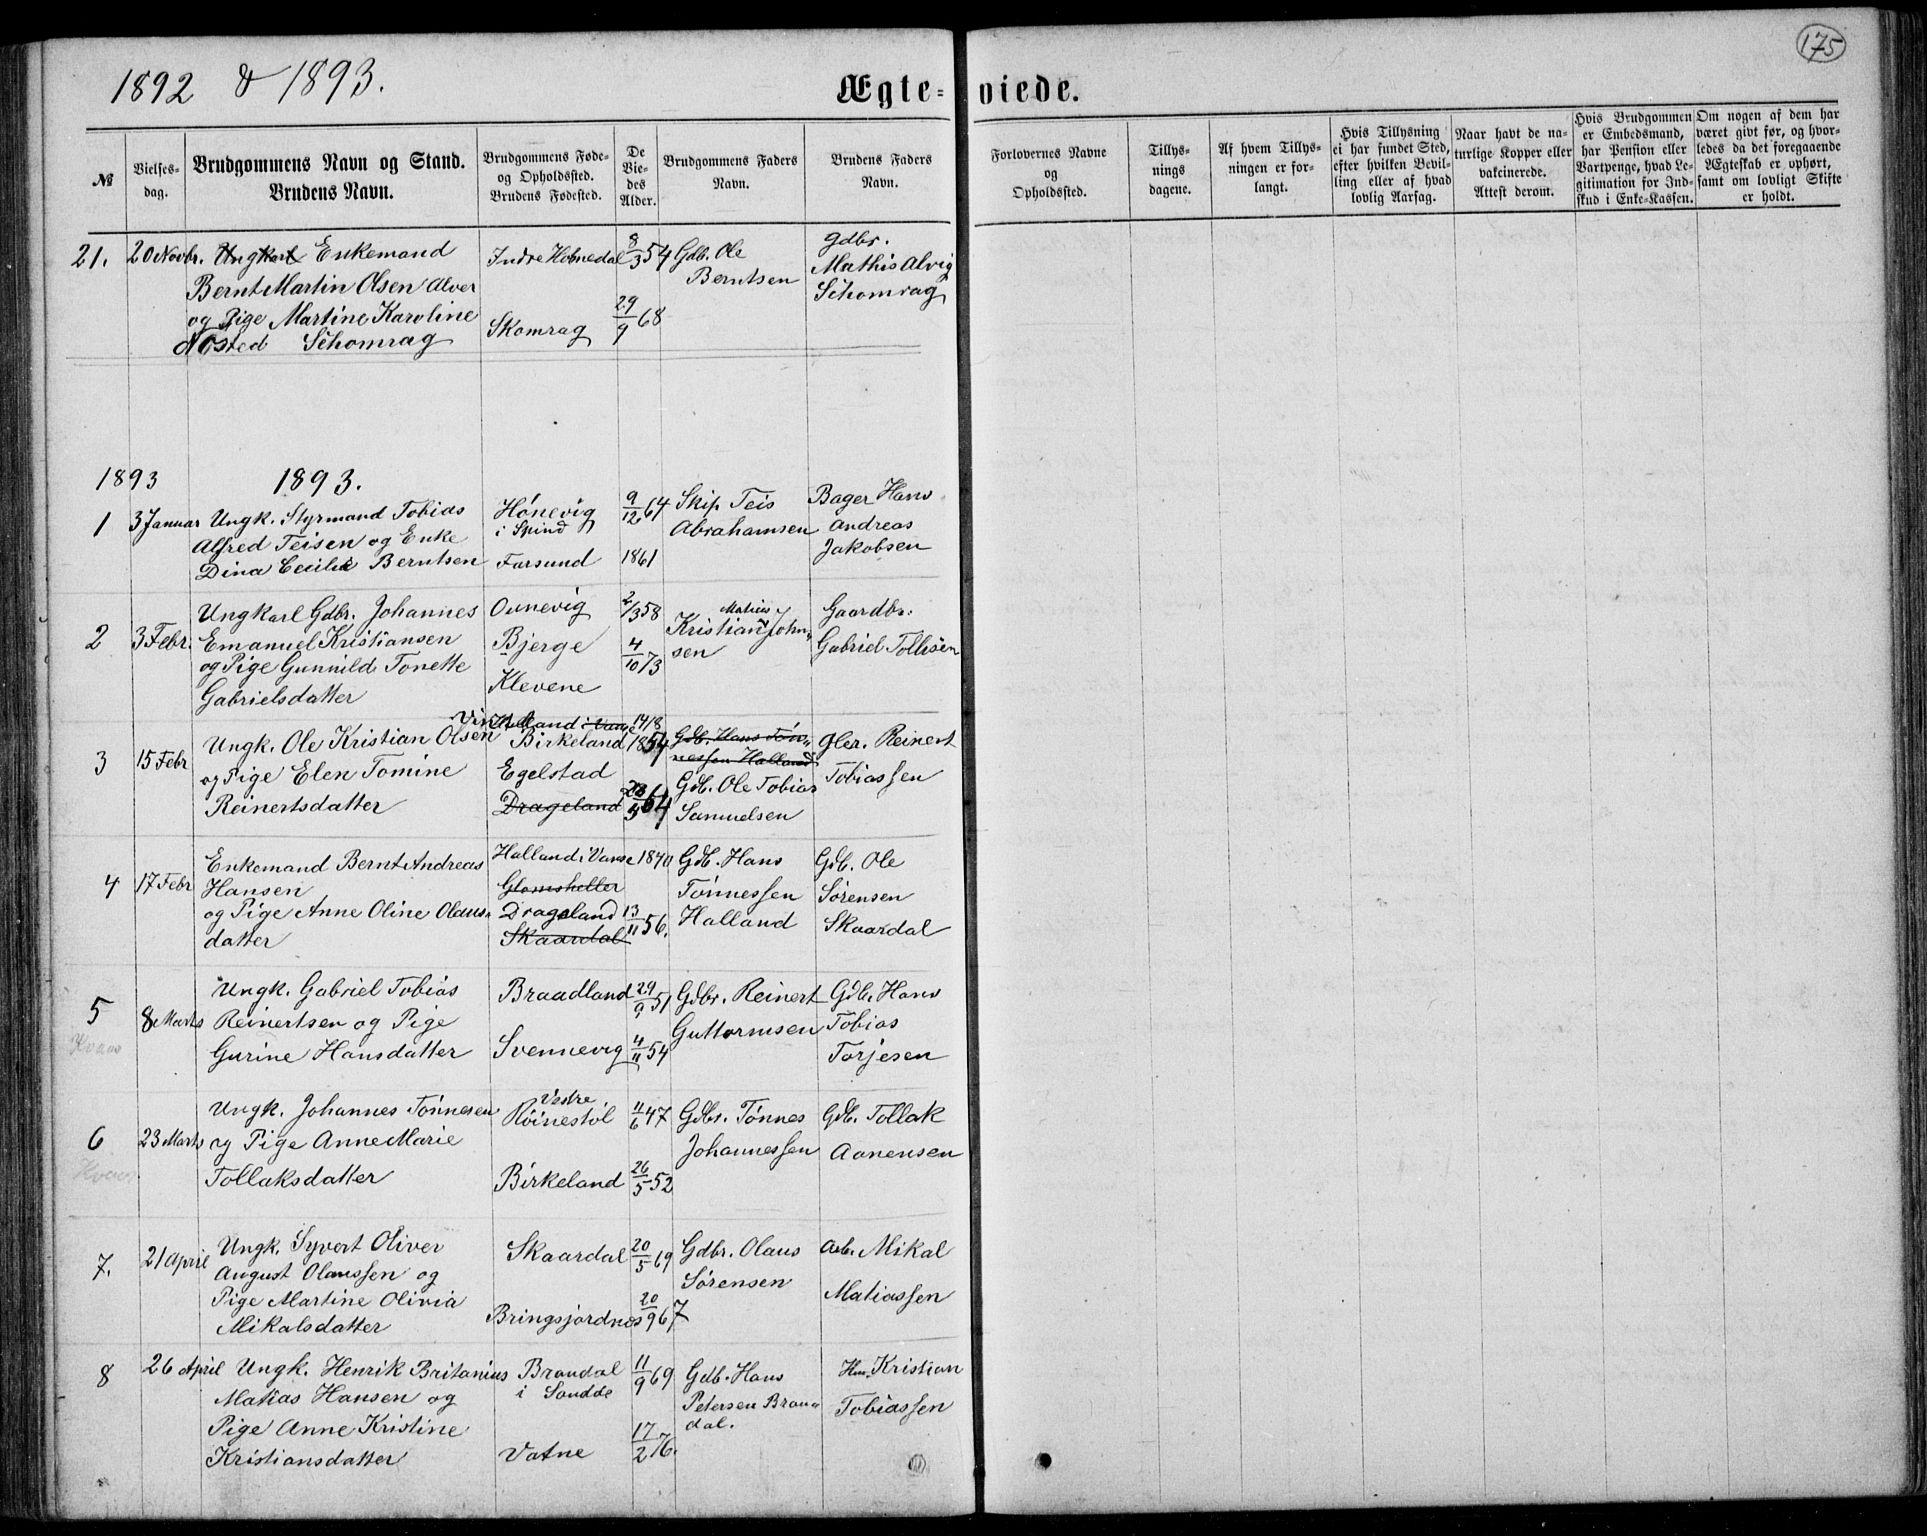 175
1892 & 1893.
Ægte- viede.
№
Vielses-
dag.
Brudgommens Navn og Stand.
Brudens Navn.
Brudgommens Føde-
og Opholdssted.
Brudens Fødested.
De
Vie-
des
Alder.
Brudgommens Faders
Navn.
Brudens Faders
Navn.
Forlovernes Navne
og
Opholdssted.
Tillys-
nings
dagene.
Af hvem Tillys-
ningen er for-
langt.
Hvis Tillysning
ei har fundet Sted,
efter hvilken Bevil-
ling eller af hvad
lovlig Aarsag.
Naar havt de na-
turlige Kopper eller
vakcinerede.
Attest derom.
Hvis Brudgommen
er Embedsmand,
har Pension eller
Vartpenge, hvad Le-
gitimation for Ind-
skud i Enke-Kassen.
Om nogen af dem har
været givt før, og hvor-
ledes da det foregaaende
Ægteskab er ophørt,
samt om lovligt Skifte
er holdt.
21. 20 Novbr. Ungkarl Enkemand
Bernt Martin Olsen Alver
og Pige Martine Karoline
Nøsted Schomrag
Indre Homedal
Skomrag
8/3 54
29/9 68
Gdb. Ole
Berntsen
Gdbr.
Mathis Alvig
Schomrag
1893 1893.
1 3 Januar Ungk. Styrmand Tobias
Alfred Teisen og Enke
Dina Cecilie Berntsen
Hönevig
i Spind
Farsund
9/12 64
1861
Skip Teis
Abrahamsen
Bager Hans
Andreas
Jakobsen
2 3 Febr. Ungkarl Gdbr. Johannes
Emanuel Kristiansen
og Pige Gunnild Tonette
Gabrielsdatter
Ovnevig
Bjerge
Klevene
2/3 58
4/10 73
Matias
Kristian John-
sen
Gaardbr.
Gabriel Tollisen
3 15 Febr Ungk. Ole Kristian Olsen
og Pige Elen Tomine
Reinertsdatter
Halland i Vanse
Birkeland
Egelstad
Drageland
14/8
1854
64
Gdb. Hans Tön-
nessen Halland
Gdb. Ole Tobias
Samuelsen
Gler. Reinert
Tobiassen
4 17 Febr Enkemand Bernt Andreas
Hansen
og Pige Anne Oline Olaus-
datter
Halland i Vanse
Glomsheller
Drageland
Skaardal
1840
13/11 56.
Gdb. Hans
Tönnessen
Halland
Gdb. Ole
Sörensen
Skaardal
5 8 Marts Ungk. Gabriel Tobias
Reinertsen og Pige
Gurine Hansdatter
Kvaas
Braadland
Svennevig
29/9 51
4/11 54
Gdbr. Reinert
Guttormsen
Gdb. Hans
Tobias
Torjesen
6 23 Marts Ungk. Johannes Tönnesen
og Pige Anne Marie
Tollaksdatter
Kvaas
Vestre
Röinestöl
Birkeland
11/6 47
26/5 52
Gdbr. Tönnes
Johannessen
Gdb. Tollak
Aanensen
7. 21 April Ungk. Syvert Oliver
August Olaussen og
Pige Martine Olivia
Mikalsdatter
Skaardal
Bringsjordnes
20/5 69
20/9 67
Gdbr. Olaus
Sörensen
Arb. Mikal
Matiassen
8 26 April Ungk. Henrik Britanius
Matias Hansen og
Pige Anne Kristine
Kristiansdatter
Brandal
i Söndde
Vatne
11/9 69
17/2 76.
Gdb. Hans
Petersen Bran-
dal.
Hm. Kristian
Tobiassen